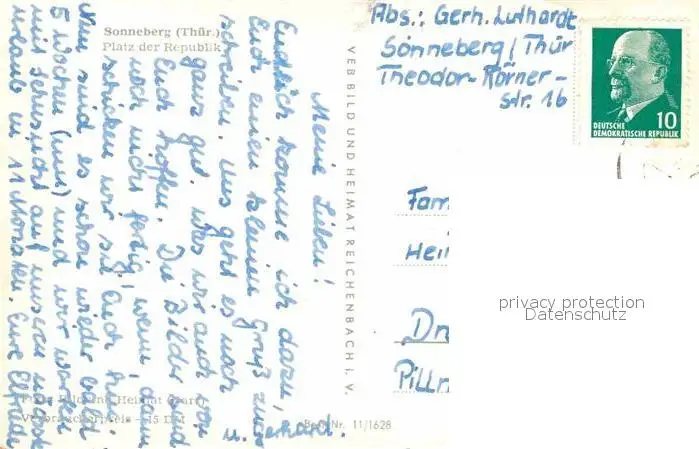 Sonneberg (Thür.)
Platz der Republik
Meine Lieben!
Endlich komme ich dazu,
Euch einen kleinen Gruß zu
schreiben. Uns geht es noch
ganz gut, was wir auch von
Euch hoffen. Die Bilder sind
noch nicht fertig, wenn, dann
schicken wir sie Euch zu.
Nun sind es schon wieder
5 Wochen und wir warten
mit Sehnsucht auf unseren nächsten
Urlaub in 11 Monaten. Eure Elfriede
u. Gerhard.
VEB BILD UND HEIMAT REICHENBACH i. V.
Verbraucherpreis -,15 DM
Best.-Nr. 11/1628
Abs.: Gerh. Luthardt
Sonneberg/Thür
Theodor-Körner-
str. 16
10
DEUTSCHE
DEMOKRATISCHE REPUBLIK
Fam
Hei
Dr
Pilln
privacy protection
Datenschutz